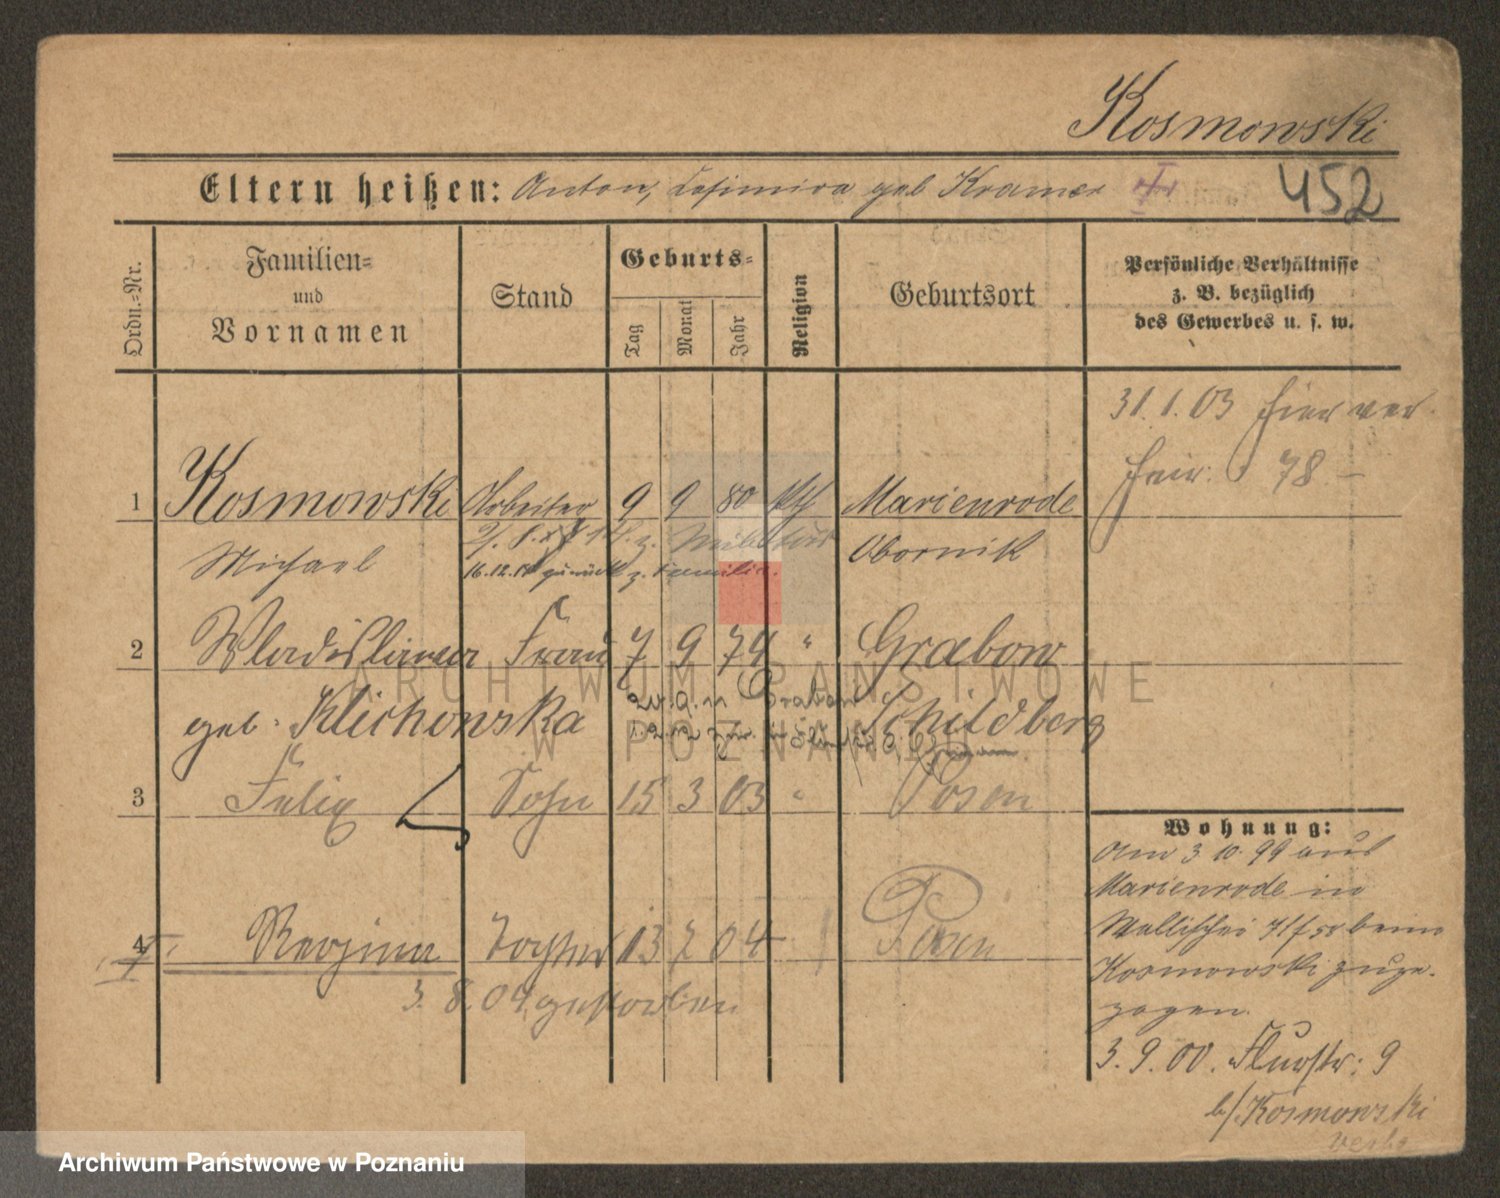 Kosmowski
Eltern heißen: Anton, Casimira geb Kramer 452
Ordn.-Nr.
Familien- und Vornamen
Stand
Geburts-
Tag Monat Jahr
Religion
Geburtsort
Persönliche Verhältnisse
z. B. bezüglich
des Gewerbes u. s. w.
31.1.03 hier ver-
heir. 78
1 Kosmowski Arbeiter 9 9 80 kth Marienrode
Michael Obornik
16.12. zurück z. Familie.
2 Wladislawa Frau 7 9 74 " Grabow
geb. Klichowska Schildberg
3 Felix Sohn 15 3 03 " Posen
4 Regina Tochter 13 7 04 Posen
3. 8. 04 gestorben
Wohnung:
Am 3 10. 99 aus
Marienrode in
Wallischei beim
Kosmowski zuge-
zogen.
3. 9. 00. Flurstr: 9
b/Kosmowski
Archiwum Państwowe w Poznaniu
ARCHIWUM PAŃSTWOWE
W POZNANIU